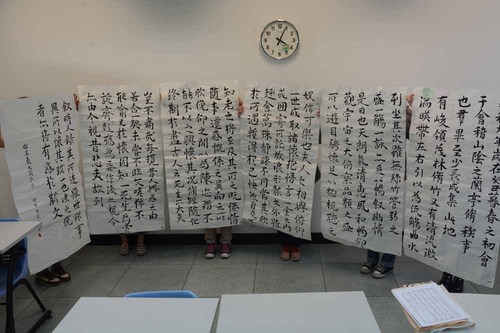 和九年歲在癸丑暮春之初會
于會稽山陰之蘭亭脩稧事
也羣賢畢至少長咸集此地
有峻領茂林脩竹又有清流激
湍暎帶左右引以為流觴曲水
列坐其次雖無絲竹管弦之
盛一觴一詠亦足以暢敘幽情
是日也天朗氣清惠風和暢仰
觀宇宙之大俯察品類之盛
所以遊目騁懷足以極視聽之
娛信可樂也夫人之相與俯仰
一世或取諸懷抱悟言一室之內
或因寄所託放浪形骸之外雖
趣舍萬殊靜躁不同當其欣
於所遇蹔得於己怏然自足不
知老之將至及其所之既惓情
隨事遷感慨係之矣向之所
欣俛仰之閒以為陳迹猶不
能不以之興懷況脩短隨化
終期於盡古人云死生亦大矣
豈不痛哉每攬昔人興感之由
若合一契未嘗不臨文嗟悼不
能喻之於懷固知一死生為虛
誕齊彭殤為妄作後之視今
亦由今之視昔悲夫故列
敘時人錄其所述雖世殊事
異所以興懷其致一也後之攬
者亦將有感於斯文